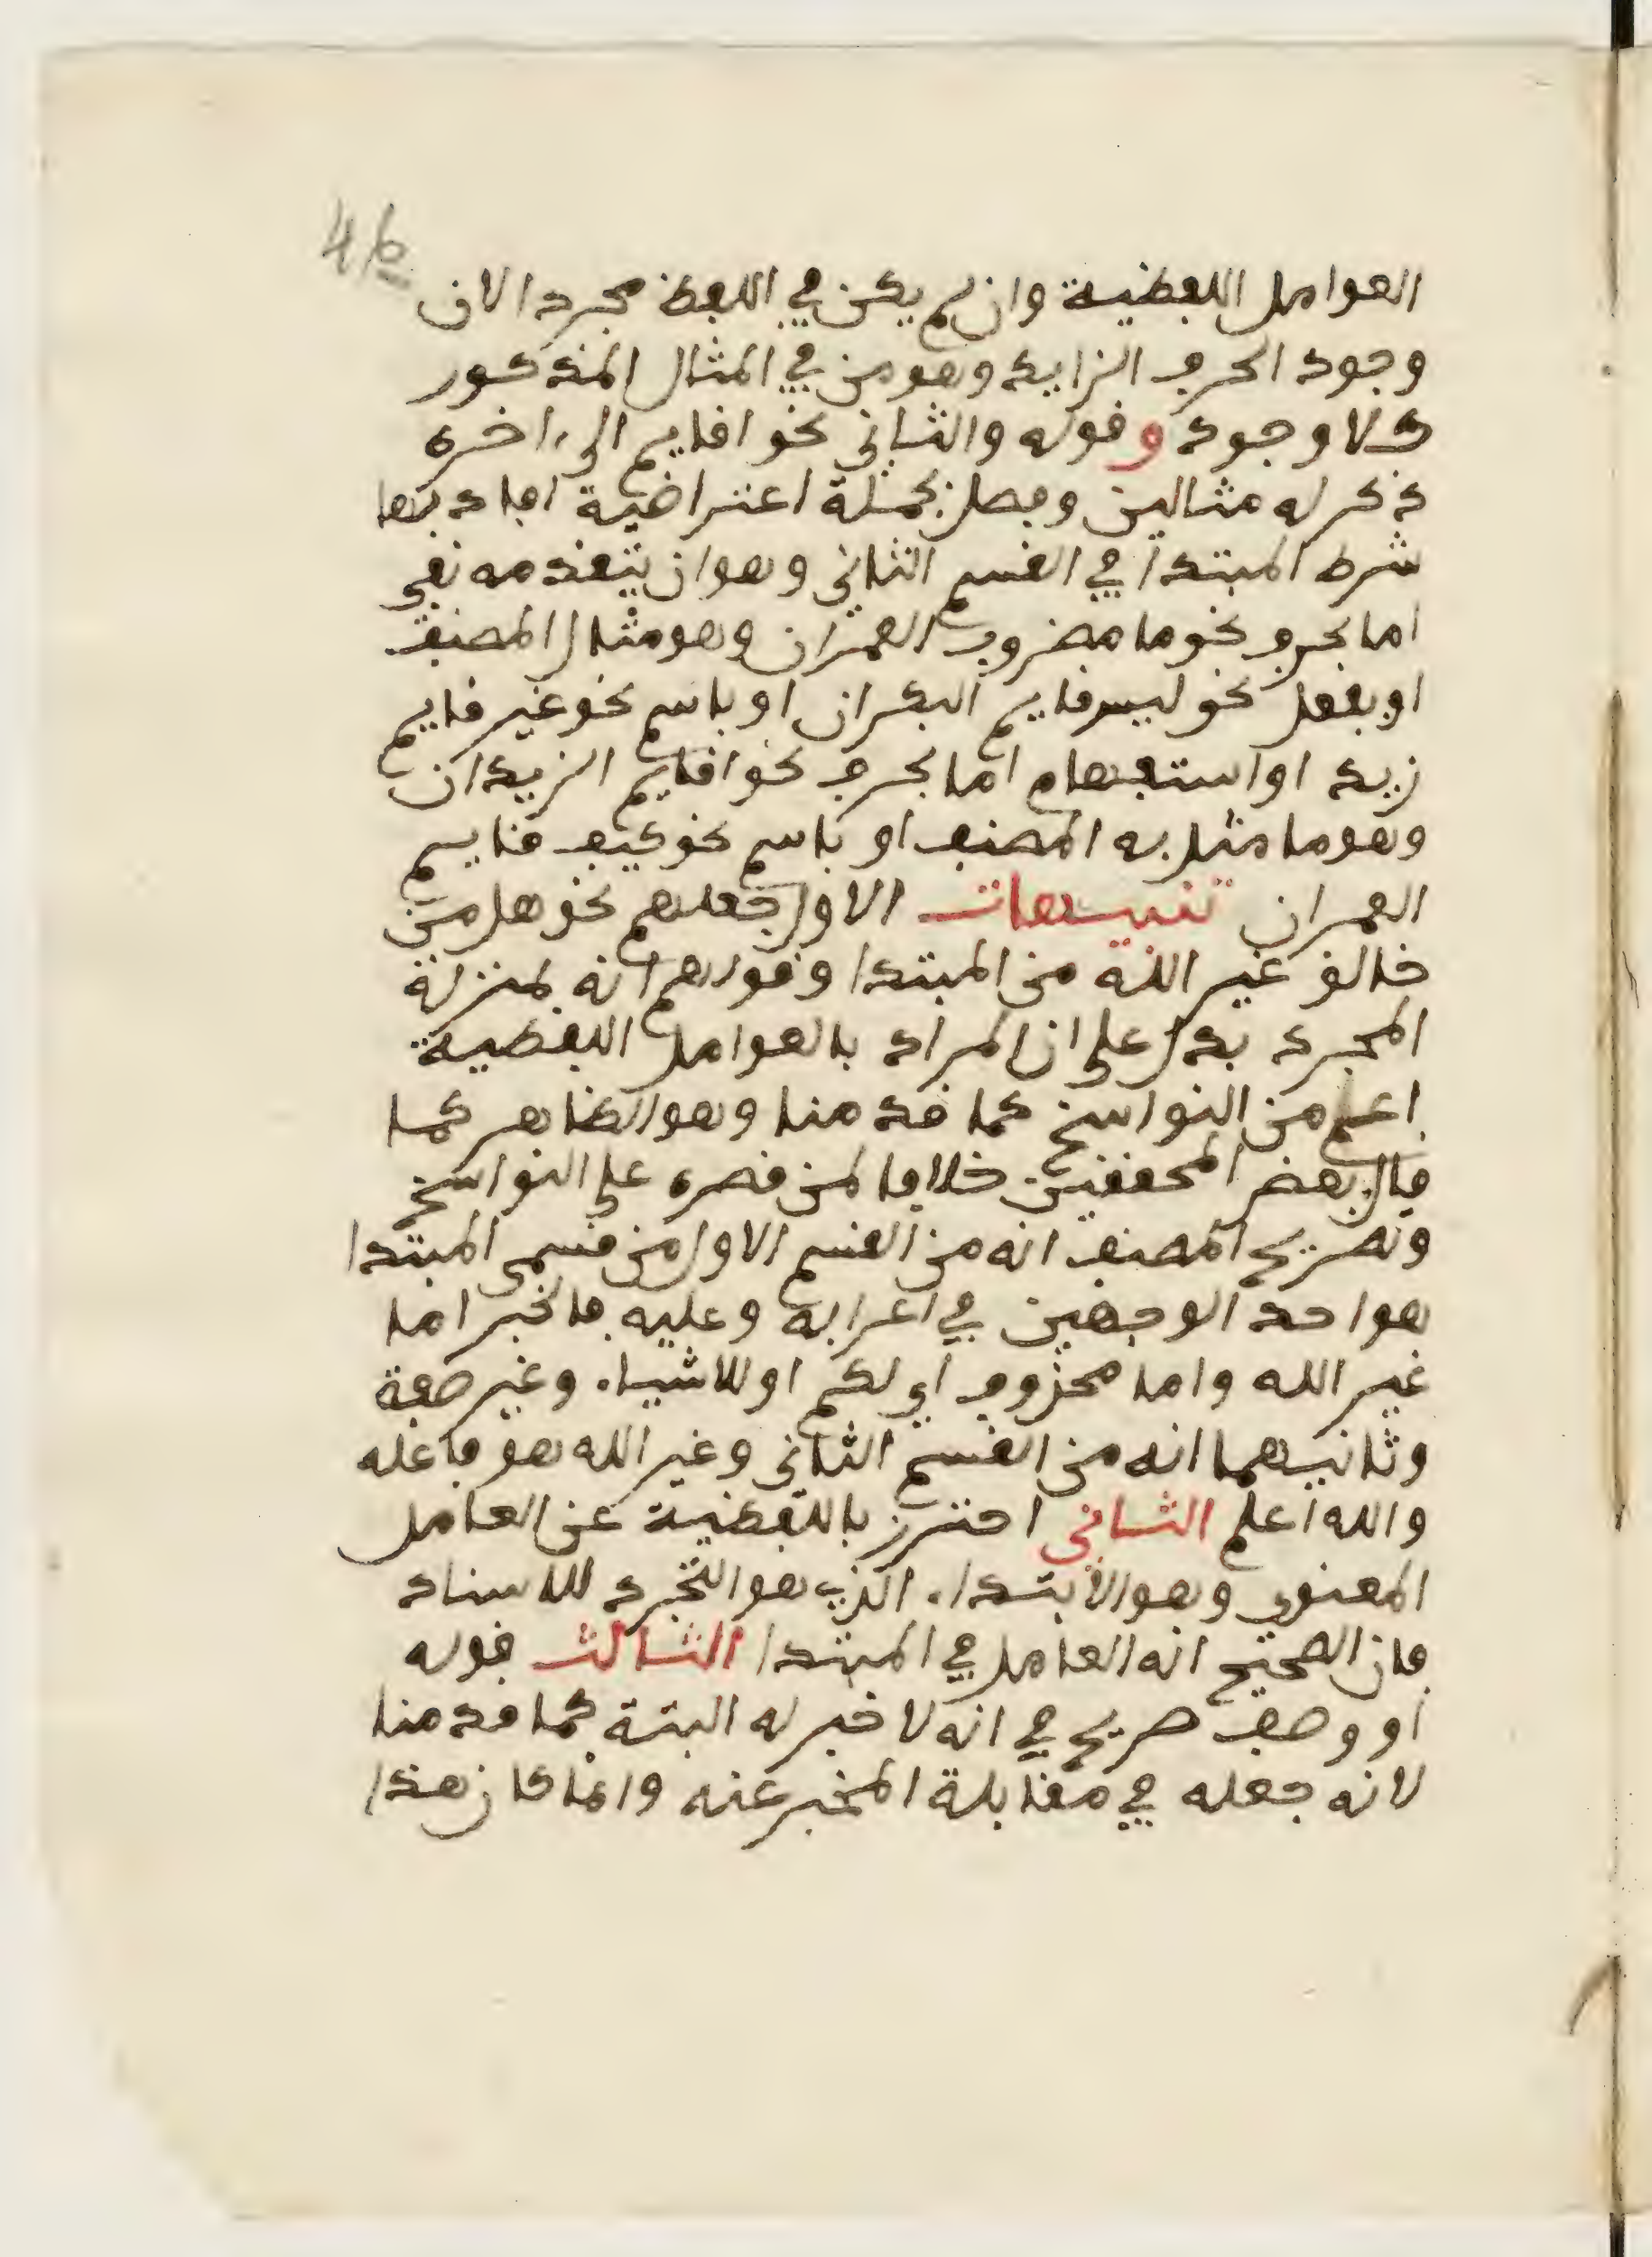 46
العوامل اللفظية وان لم يكن في اللفظ مجردا لان
وجود الحرف الزايد وهو من في المثال المذكور
كلا وجود وقوله والثاني نحو اقايم الى اخره
ذكر له مثالين وفصل بجملة اعتراضية افاد بها
شرط المبتدا في القسم الثاني وهو ان يتقدمه نفي
اما بحرف نحو ما مضروب العمران وهو مثال المصنف
او بفعل نحو ليس قايم البكران او باسم نحو غير قايم
زيد او استفهام اما بحرف نحو اقايم الزيدان
وهو ما مثل به المصنف او باسم نحو كيف قايم
العمران تنبيهات الاول جعلهم نحو هل من
خالق غير الله من المبتدا وقولهم انه بمنزلة
المجرد يدل على ان المراد بالعوامل اللفظية
اعم من النواسخ كما قدمنا وهو الظاهر كما
قال بعض المحققين خلافا لمن قصره على النواسخ
وتصريح المصنف انه من القسم الاول من قسمي المبتدا
هو احد الوجهين في اعرابه وعليه فالخبر اما
غير الله واما محذوف اي لكم او للاشياء وغير صفة
وثانيهما انه من القسم الثاني وغير الله هو فاعله
والله اعلم الثاني احترز باللفظية عن العامل
المعنوي وهو الابتداء الذي هو التجرد للاسناد
فان الصحيح انه العامل في المبتدا الثالث قوله
او وصف صريح في انه لا خبر له البتة كما قدمنا
لانه جعله في مقابلة المخبر عنه وانما كان هذا